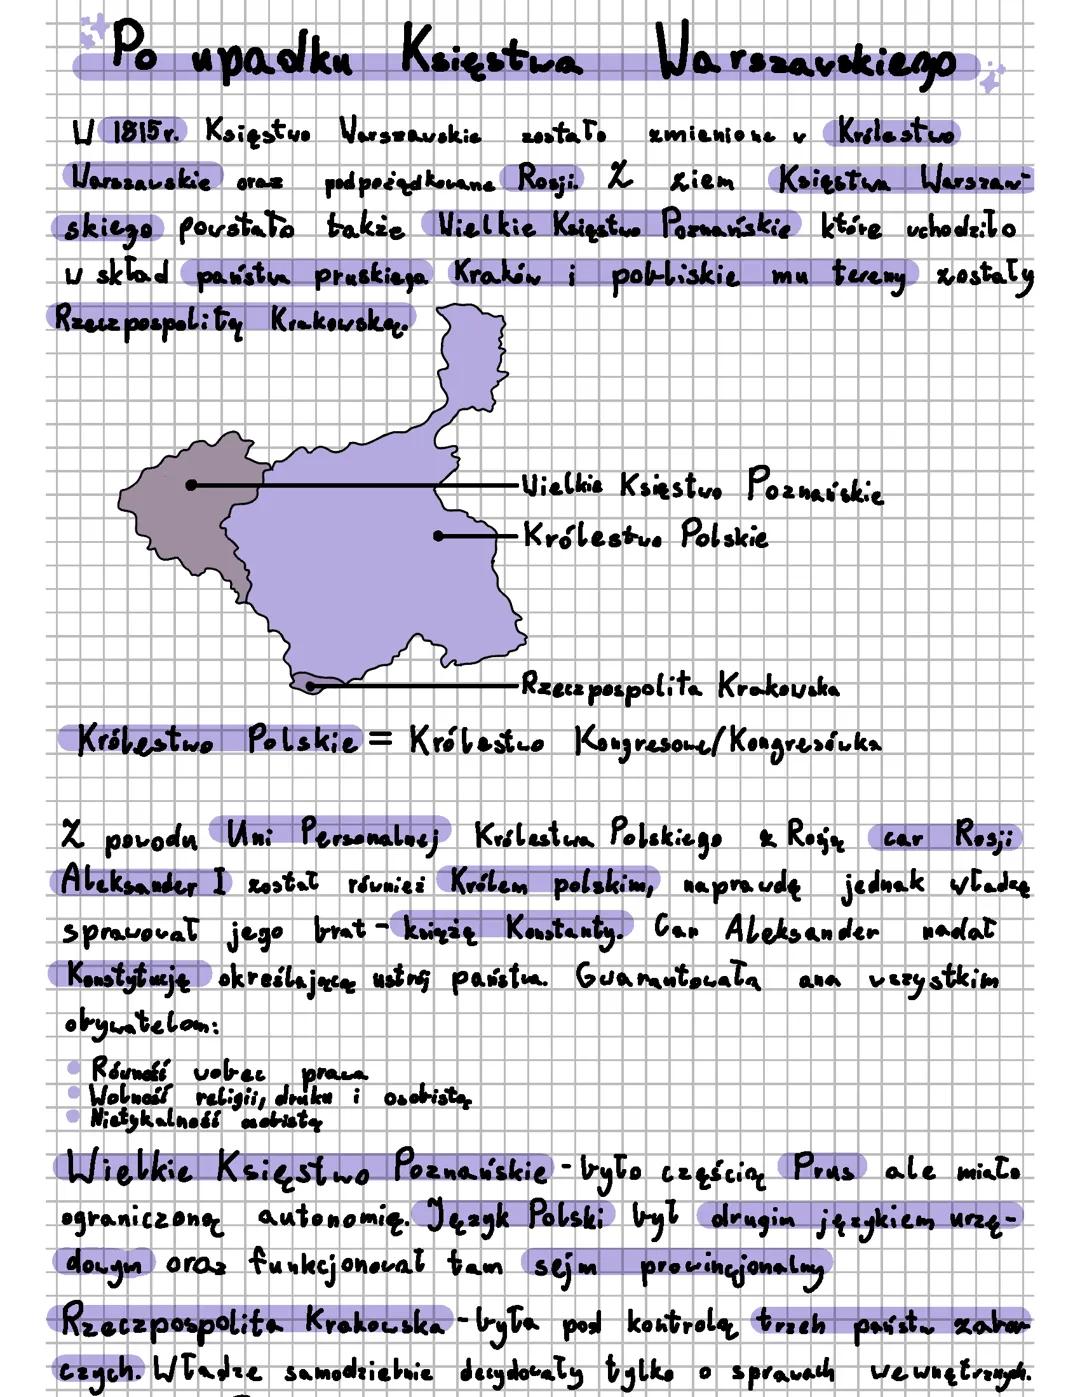 Po upadku Księstwa Warszawskiego
W 1815r. Księstwo Warszawskie zostało zmienione w Królestwo
Warszawskie oraz podporządkowane Rosji. Z ziem Księstwa Warszaw-
skiego powstało także Wielkie Księstwo Poznańskie które wchodziło
w skład państwa pruskiego. Kraków i pobliskie mu tereny zostały
Rzeczpospolitą Krakowską.
Wielkie Księstwo Poznańskie
Królestwo Polskie
Rzeczpospolita Krakowska
Królestwo Polskie = Królestwo Kongresowe/Kongresówka
Z powodu Uni Personalnej Królestwa Polskiego z Rosją car Rosji
Aleksander I został również Królem polskim, naprawdę jednak władzę
sprawował jego brat - książę Konstanty. Car Aleksander nadał
Konstytucję określającą ustrój państwa. Gwarantowała ona wszystkim
obywatelom:
• Równość wobec prawa
• Wolność religii, druku i osobistą
• Nietykalność osobistą
Wielkie Księstwo Poznańskie - było częścią Prus ale miało
ograniczoną autonomię. Język Polski był drugim językiem urzę-
dowym oraz funkcjonował tam sejm prowincjonalny
Rzeczpospolita Krakowska - była pod kontrolą trzech państw zabor
czych. Władze samodzielnie decydowały tylko o sprawach wewnętrznych.